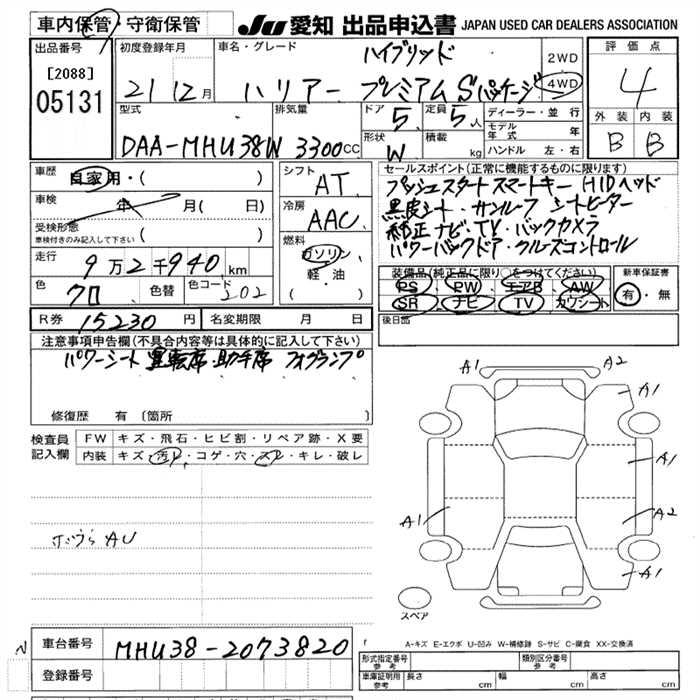 車内保管・守衛保管
JU 愛知 出品申込書 JAPAN USED CAR DEALERS ASSOCIATION
出品番号
[2088]
05131
初度登録年月
21 12月
車名・グレード
ハイブリッド
ハリアー プレミアムSパッケージ
2WD
4WD
評価点
4
外装 内装
B B
型式
DAA-MHU38W
排気量
3300cc
ドア
5
定員
5人
形状
W
積載
kg
ディーラー・並行
モデル年式 年
ハンドル 左・右
車歴
自家用・( )
車検
年 月( 日)
受検形態
車検付きのみ記入して下さい ( )
走行
9万2千940km
色
クロ
色替
色コード
202
シフト
AT
冷房
AAC
燃料
ガソリン
軽・油
( )
セールスポイント(正常に機能するものに限ります)
プッシュスタート スマートキー HIDヘッド
黒皮シート・サンルーフ シートヒーター
純正ナビ・TV・バックカメラ
パワーバックドア・クルーズコントロール
装備品(純正品に限り○をつけてください)
PS PW エアB AW
SR ナビ TV カワシート
新車保証書
有・無
後日品
R券 15230円 名変期限 月 日
注意事項申告欄(不具合内容等は具体的に記入して下さい)
パワーシート 運転席・助手席 フォグランプ
修復歴 有〔箇所
検査員記入欄
FW キズ・飛石・ヒビ割・リペア跡・X要
内装 キズ・汚レ・コゲ・穴・スレ・キレ・破レ
A1 A2
A1
A1
A1 A2
A1
スペア
車台番号 MHU38-2073820
登録番号
A-キズ E-エクボ U-凹み W-補修跡 S-サビ C-腐食 XX-交換済
形式指定番号 参考
類別区分番号 参考
車庫証明用 参考
長さ cm 幅 cm 高さ cm